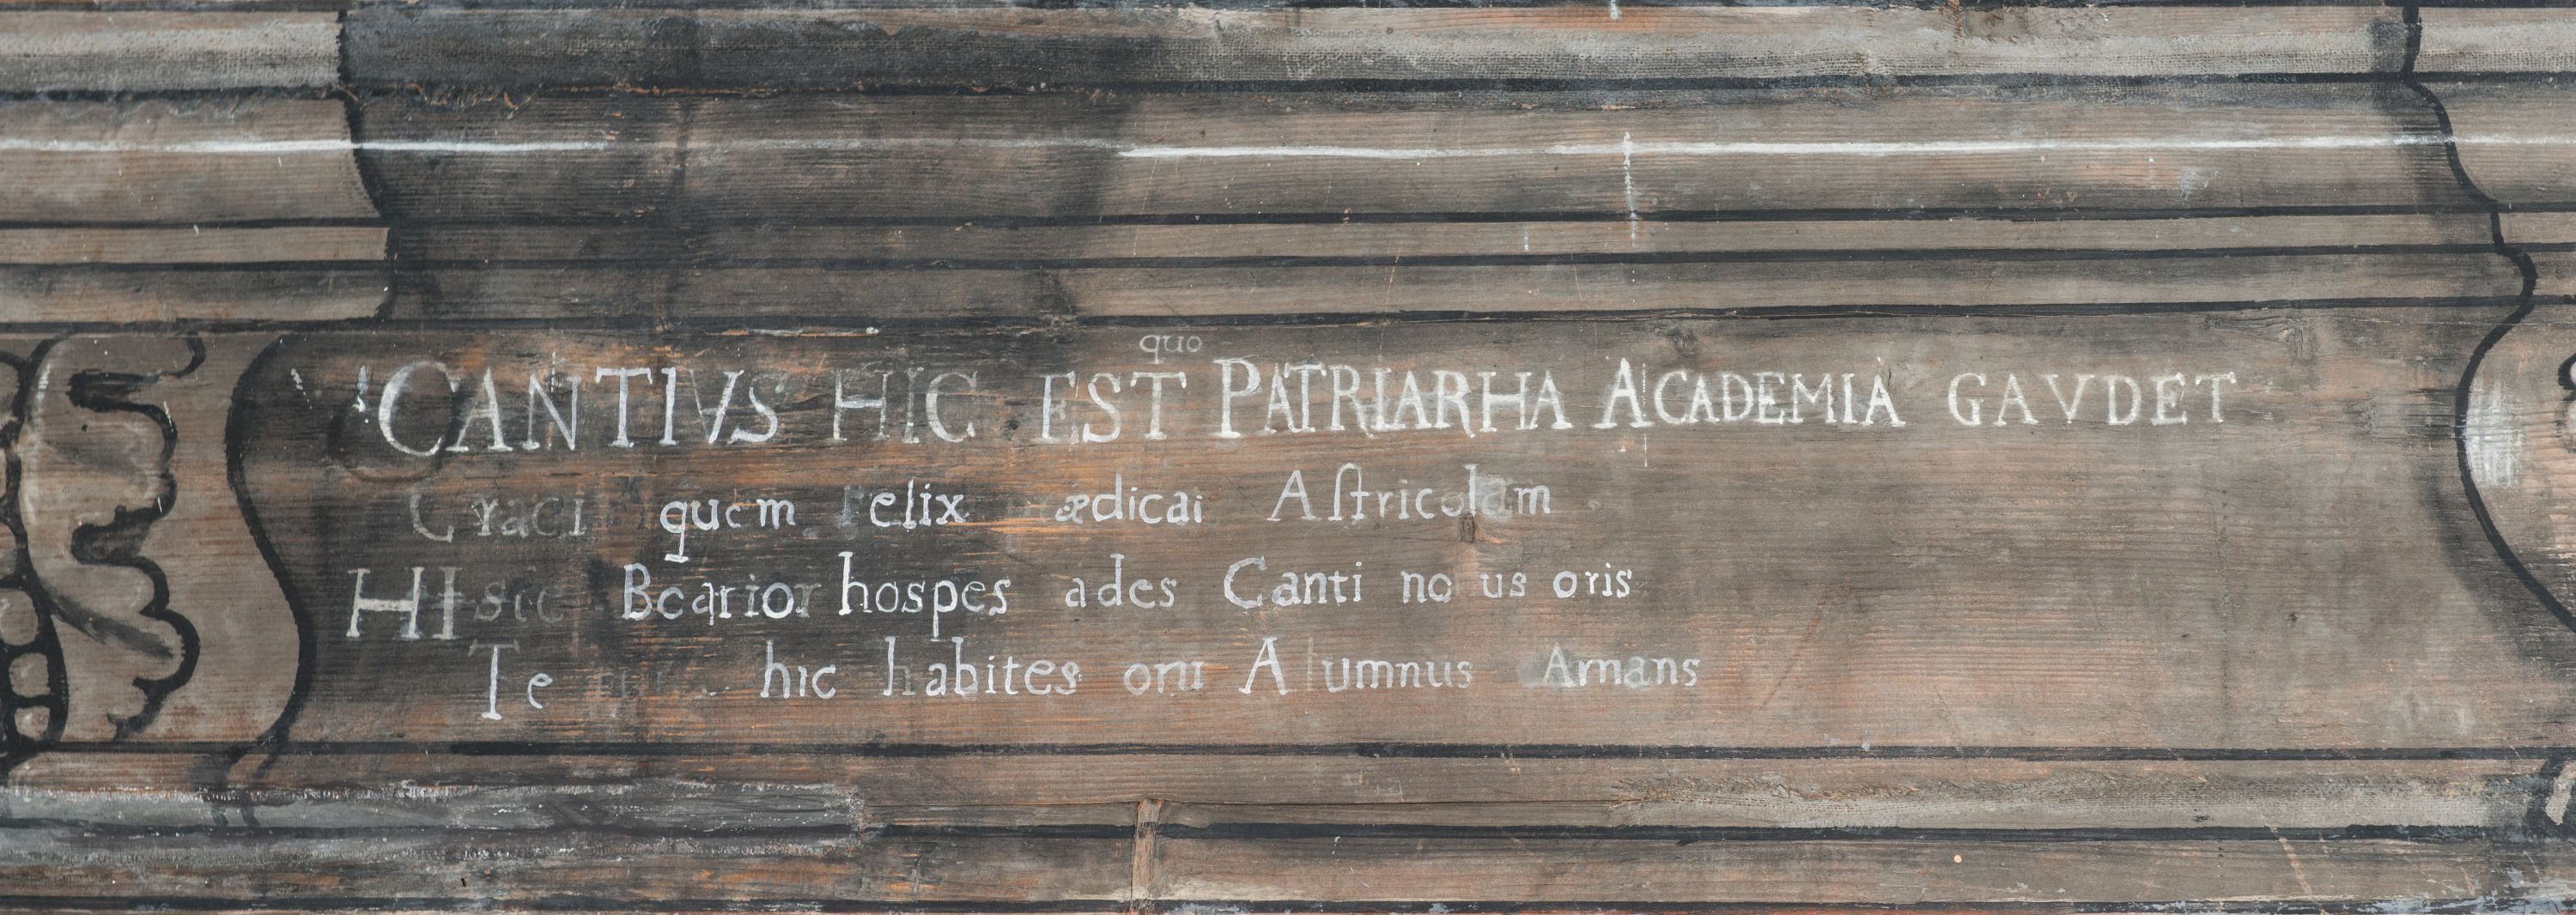 quo
CANTIVS HIC EST PATRIARHA ACADEMIA GAVDET
quem elix ædicai Aſtricolam
Bearior hospes ades Canti no us oris
Te hic habites oru A umnus Amans